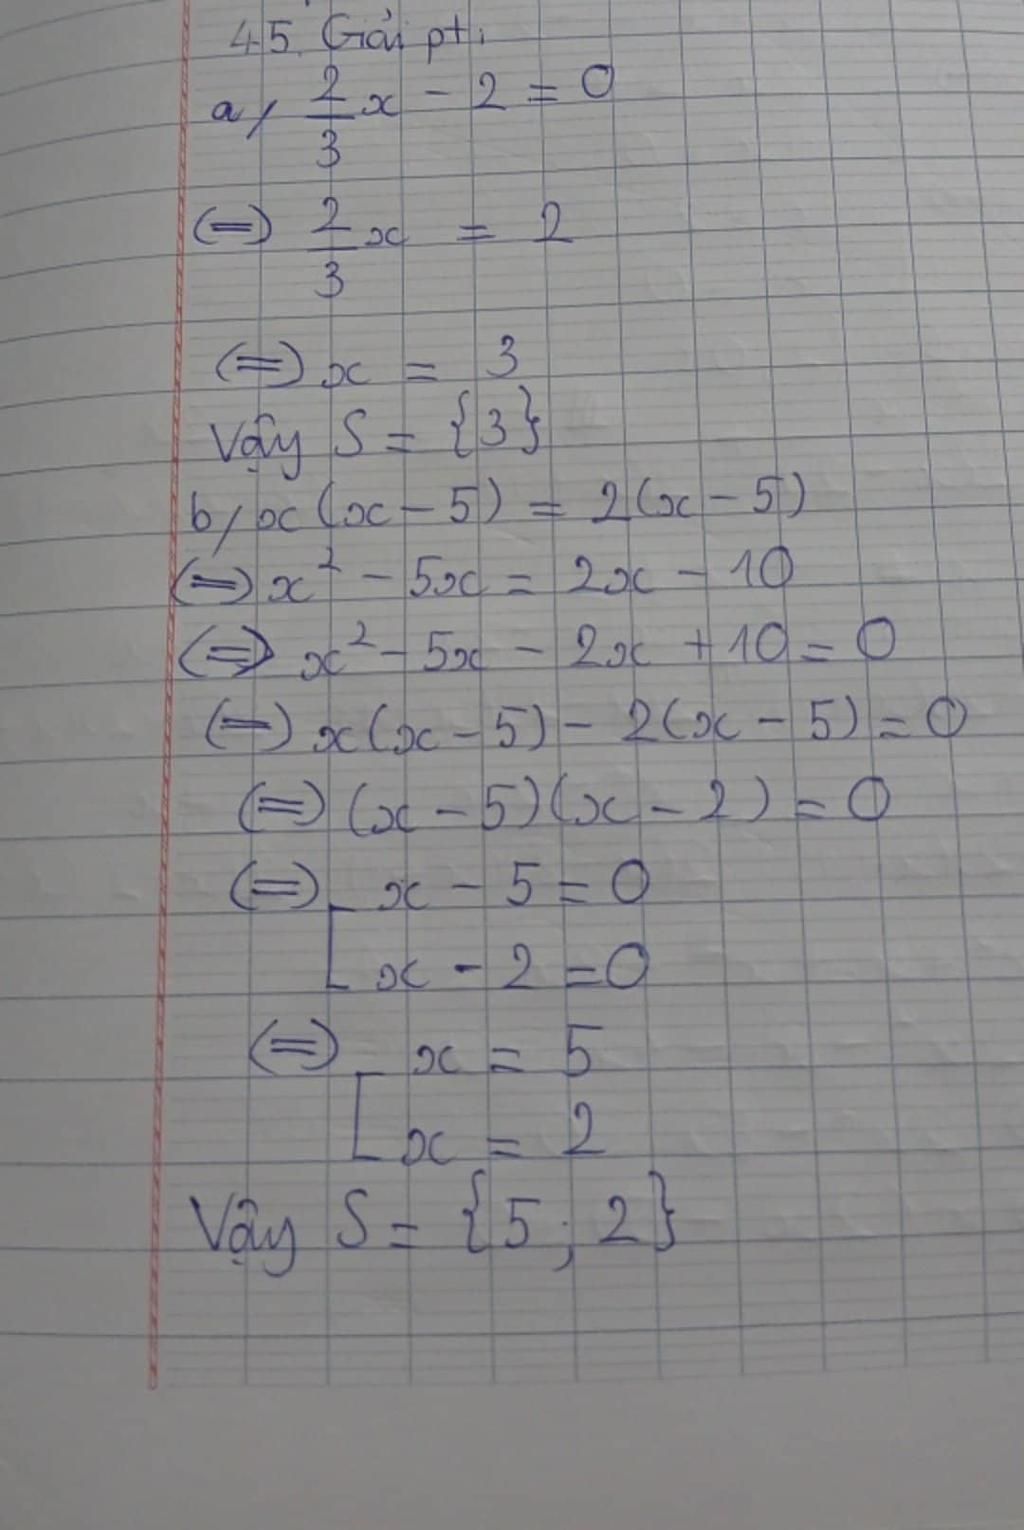 45. Giải pt:
a, 2/3 x - 2 = 0
(=) 2/3 x = 2
(=) x = 3
Vậy S = {3}
b, x(x - 5) = 2(x - 5)
(=) x² - 5x = 2x - 10
(=) x² - 5x - 2x + 10 = 0
(=) x(x - 5) - 2(x - 5) = 0
(=) (x - 5)(x - 2) = 0
(=) [ x - 5 = 0
x - 2 = 0
(=) [ x = 5
x = 2
Vậy S = {5; 2}